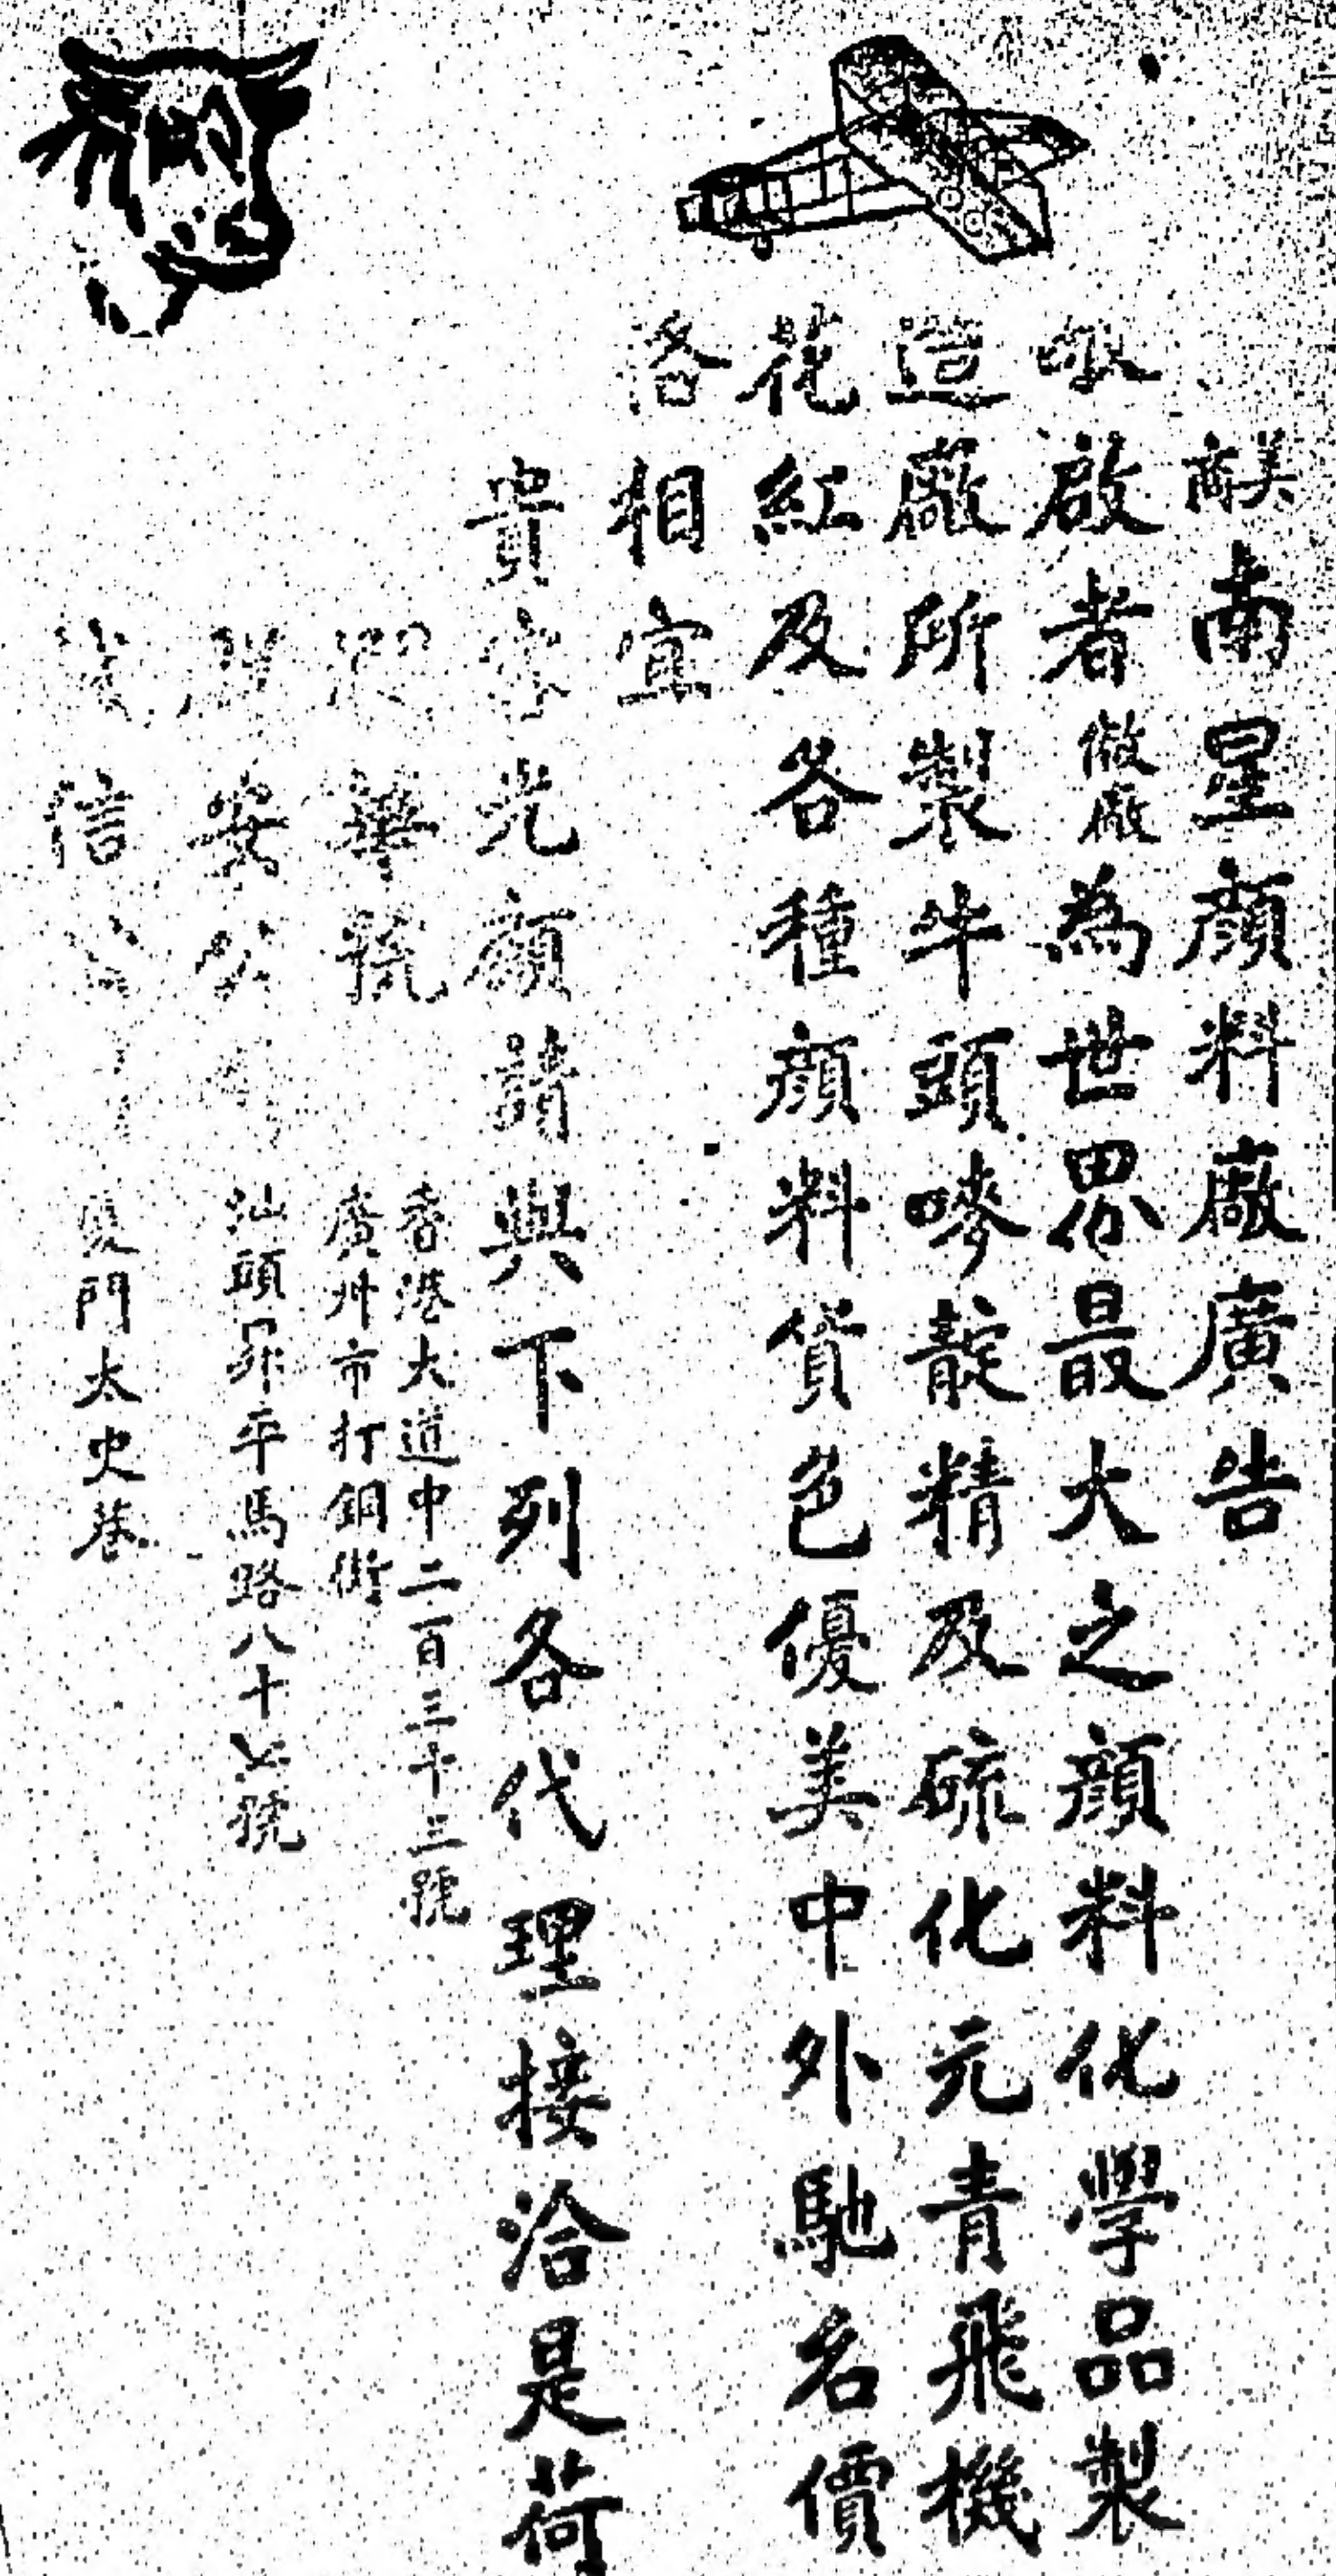 美商南星顏料廠廣告
敬啟者敝廠為世界最大之顏料化學品製
造廠所製牛頭嘜靛精及硫化元青飛機
花紅及各種顏料貨色優美中外馳名價
格相宜
貴客光顧請與下列各代理接洽是荷
華號
香港大道中二百三十三號
廣州市打銅街
安公司
汕頭昇平馬路八十七號
信公司
廈門太史巷